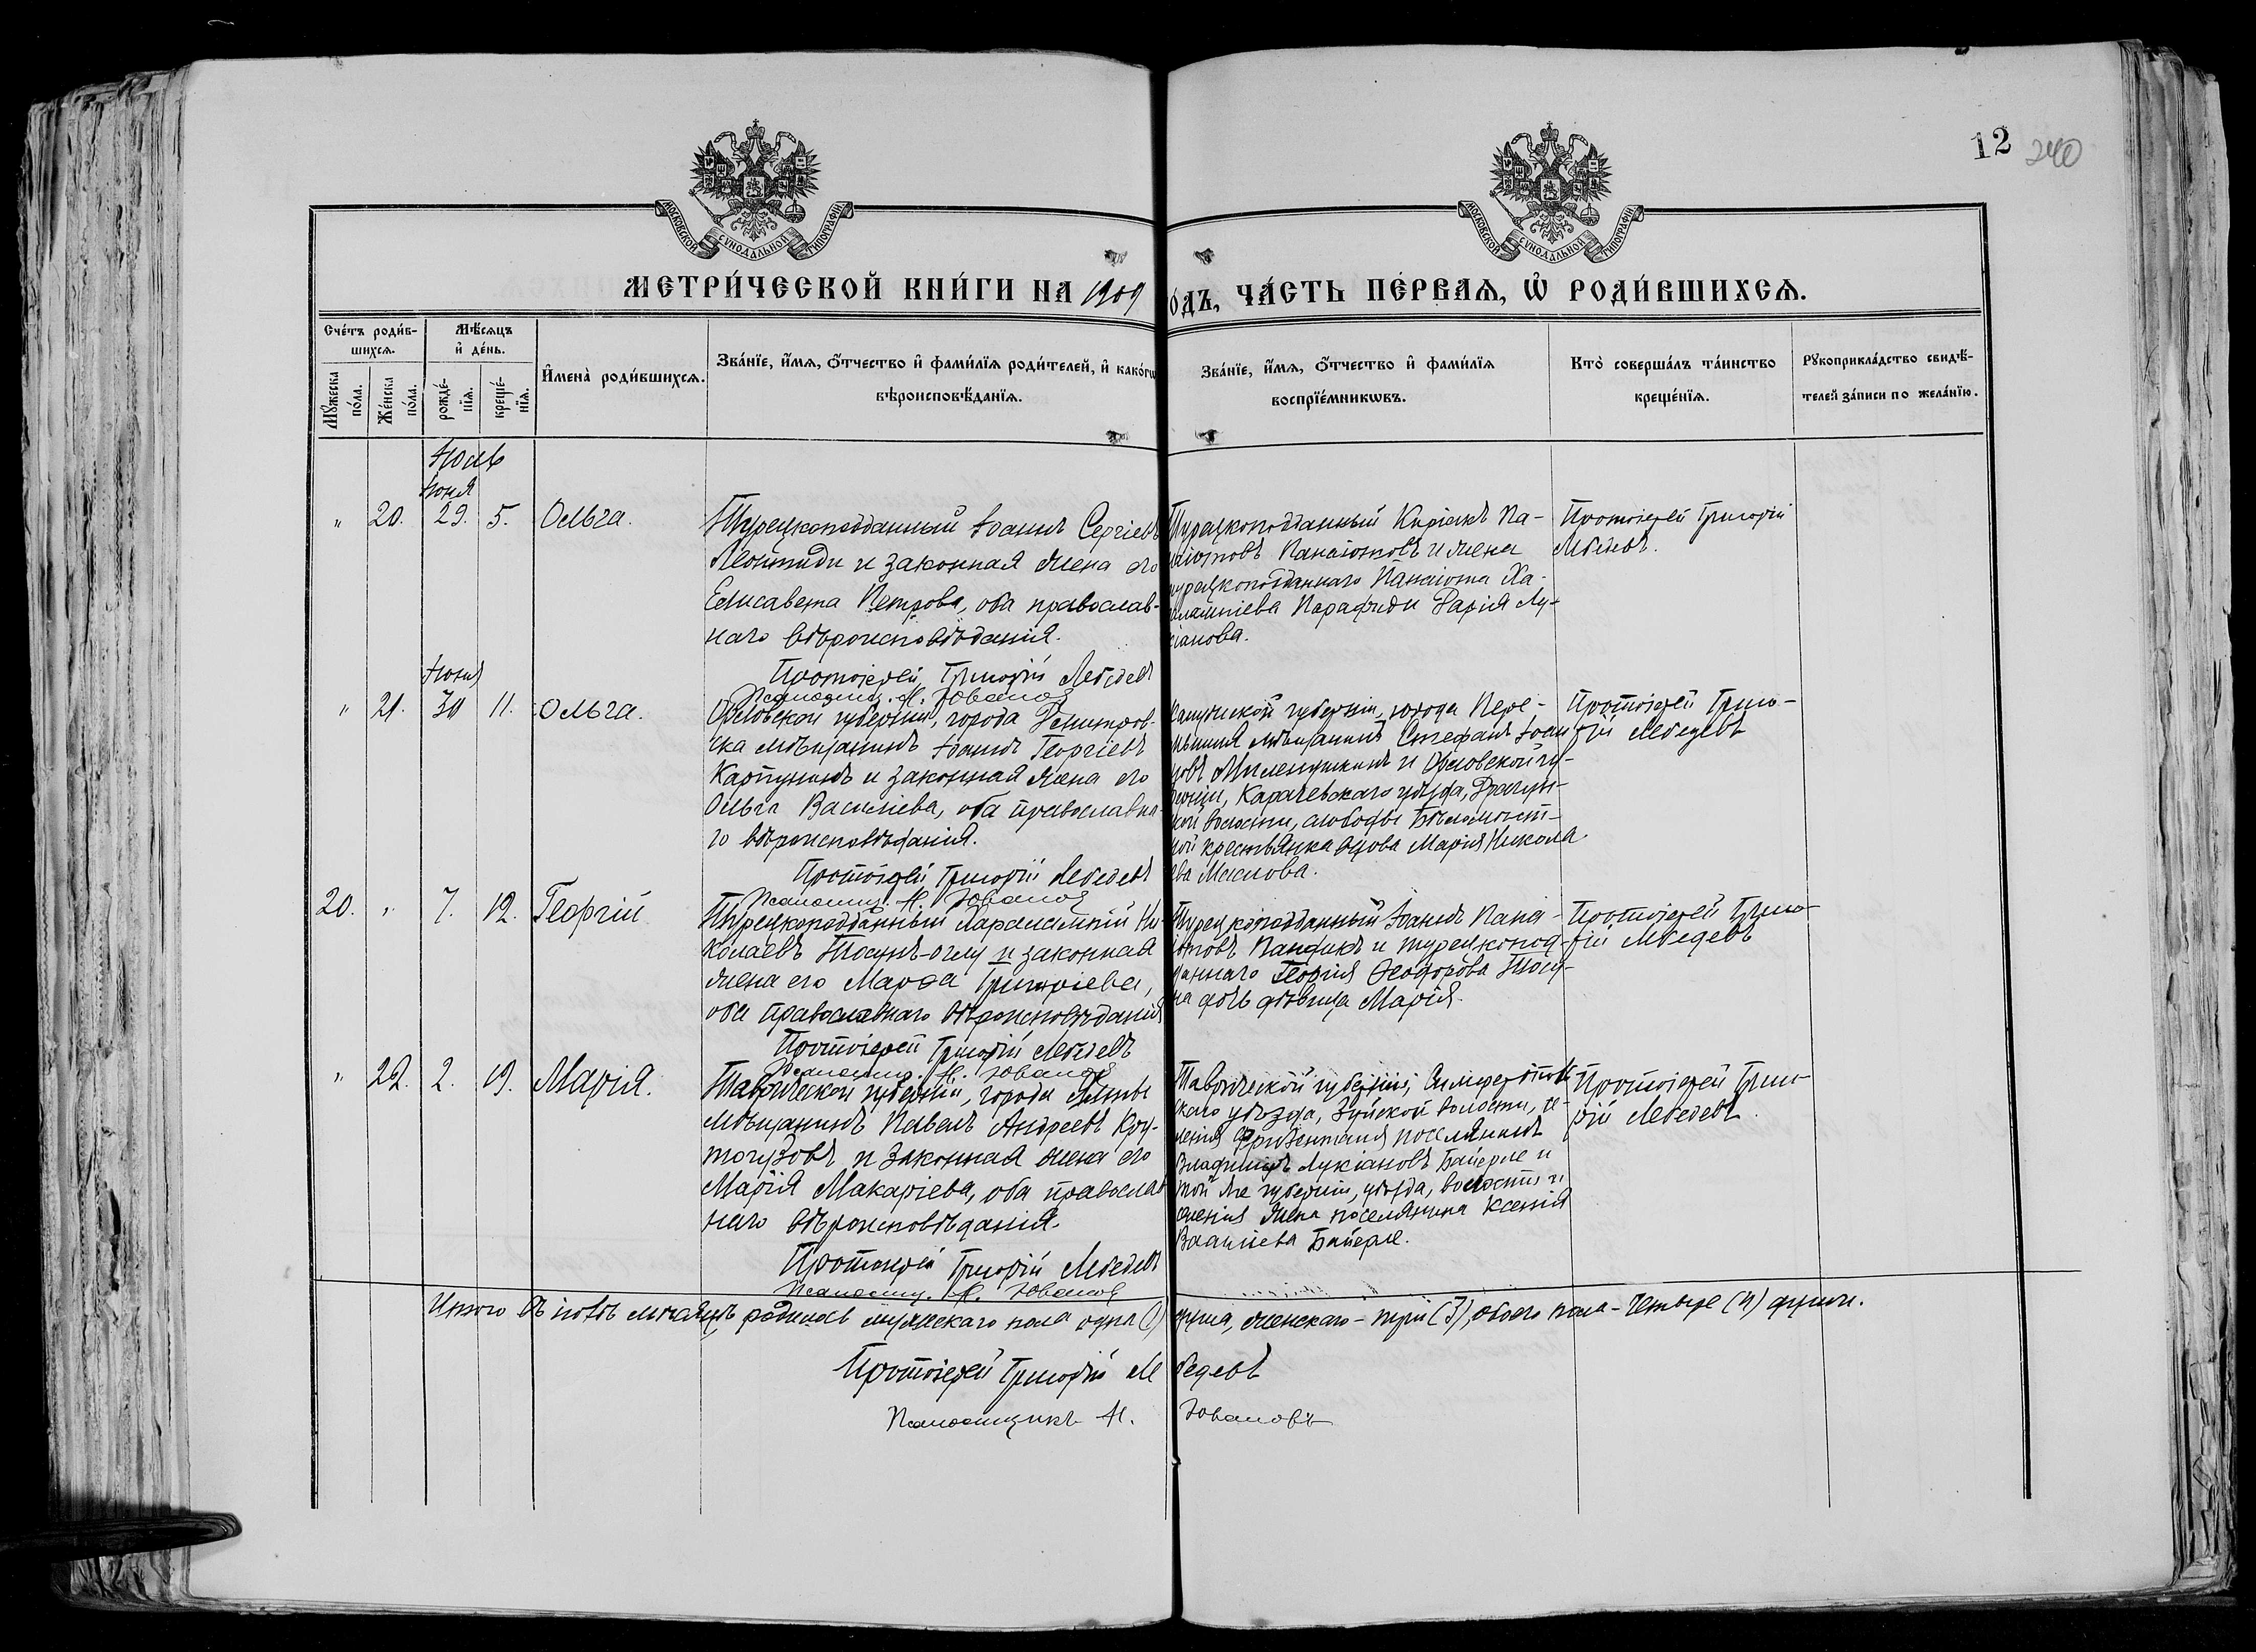 12 240
МОСКОВСКОЙ СУНОДАЛЬНОЙ ТИПОГРАФІИ
МОСКОВСКОЙ СУНОДАЛЬНОЙ ТИПОГРАФІИ
МЕТРИ́ЧЕСКОЙ КНИ́ГИ НА 1909
О́ДЪ, ЧА́СТЬ ПЕ́РВАѦ, Ѡ҆ РОДИ́ВШИХСѦ.
Сче́тъ роди́в-
шихсѧ.
Мѣ́сѧцъ
и҆ де́нь.
Мꙋ́жеска
по́ла.
Же́нска
по́ла.
рожде́-
нїѧ.
креще́-
нїѧ.
И҆мена̀ роди́вшихсѧ.
Зва́нїе, и҆́мѧ, ѻ҆́тчество и҆ фами́лїѧ роди́телей, и҆ како́гѡ
вѣроисповѣ́данїѧ.
Зва́нїе, и҆́мѧ, ѻ҆́тчество и҆ фами́лїѧ
воспрїе́мникѡвъ.
Кто̀ соверша́лъ та́инство
креще́нїѧ.
Рꙋкоприкла́дство свидѣ́-
телей за́писи по жела́нїю.
Іюль
Іюня
" 20. 29. 5. Ольга.
Турецкоподданный Іоаннъ Сергіевъ
Леонтиди и законная жена его
Елисавета Петрова, оба православ-
наго вѣроисповѣданія.
Протоіерей Григорій Лебедевъ
Псаломщ. Н. Іовановъ
Турецкоподданный Киріакъ Па-
наіотовъ Панаіотовъ и жена
турецкоподданнаго Панаіота Ха-
лампіева Парафиди Дарія Лу-
кіанова.
Протоіерей Григорій
Лебедевъ.
Іюня
" 21. 30 11. Ольга.
Орловской губерніи, города Дмитров-
ска мѣщанинъ Іоаннъ Георгіевъ
Карпунинъ и законная жена его
Ольга Васильева, оба православна-
го вѣроисповѣданія.
Протоіерей Григорій Лебедевъ
Псаломщ. Н. Іовановъ
Калужской губерніи, города Пере-
мышля мѣщанинъ Стефанъ Іоан-
новъ и Орловской гу-
берніи, Карачевскаго уѣзда, Драгун-
ской волости, слободы
ной крестьянка вдова Марія Никола-
ева Маслова.
Протоіерей Григо-
рій Лебедевъ
20. " 7. 12. Георгій
Турецкоподданный Харалампій Ни-
колаевъ Тосунъ-оглу и законная
жена его Марѳа Григоріева,
оба православнаго вѣроисповѣданія
Протоіерей Григорій Лебедевъ
Псаломщ. Н. Іовановъ
Турецкоподданный Іоаннъ Пана-
іотовъ и турецкопод-
даннаго Георгія Ѳеодорова Тосу-
на дочь дѣвица Марія.
Протоіерей Григо-
рій Лебедевъ
" 22. 2. 19. Марія.
Таврической губерніи, города Ялты
мѣщанинъ Павелъ Андреевъ Кру-
тогузовъ и законная жена его
Марія Макаріева, оба православ-
наго вѣроисповѣданія.
Протоіерей Григорій Лебедевъ
Псаломщ. Н. Іовановъ
Таврической губерніи, Симферополь-
скаго уѣзда, Зуйской волости, се-
ленія Фриденталя поселянинъ
Владиміръ Лукіановъ Байерле и
той же губерніи, уѣзда, волости и
селенія жена поселянина Ксенія
Байерле.
Протоіерей Григо-
рій Лебедевъ.
Итого въ іюлѣ мѣсяцѣ родилось мужскаго пола одна (1) душа, женскаго - три (3), обоего пола - четыре (4) души.
Протоіерей Григорій Лебедевъ
Псаломщикъ Н. Іовановъ